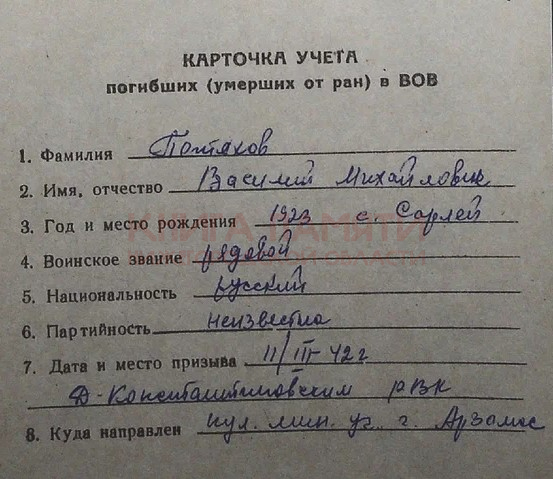 КАРТОЧКА УЧЕТА
погибших (умерших от ран) в ВОВ
1. Фамилия Потяков
2. Имя, отчество Василий Михайлович
3. Год и место рождения 1923 с. Сарлей
КНИГА ПАМЯТИ
4. Воинское звание рядовой
НИЖЕГОРОДСКОЙ ОБЛАСТИ
5. Национальность русский
6. Партийность неизвестна
7. Дата и место призыва 11/III-42 г
Д-Константиновским РВК
8. Куда направлен пул. мин. уч. г. Арзамас